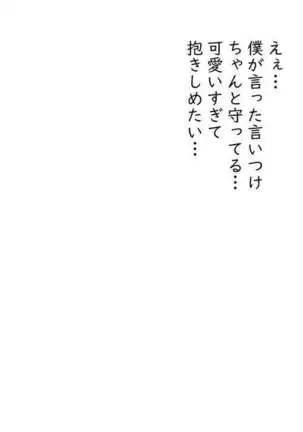 えぇ…
僕が言った言いつけ
ちゃんと守ってる…
可愛いすぎて
抱きしめたい…